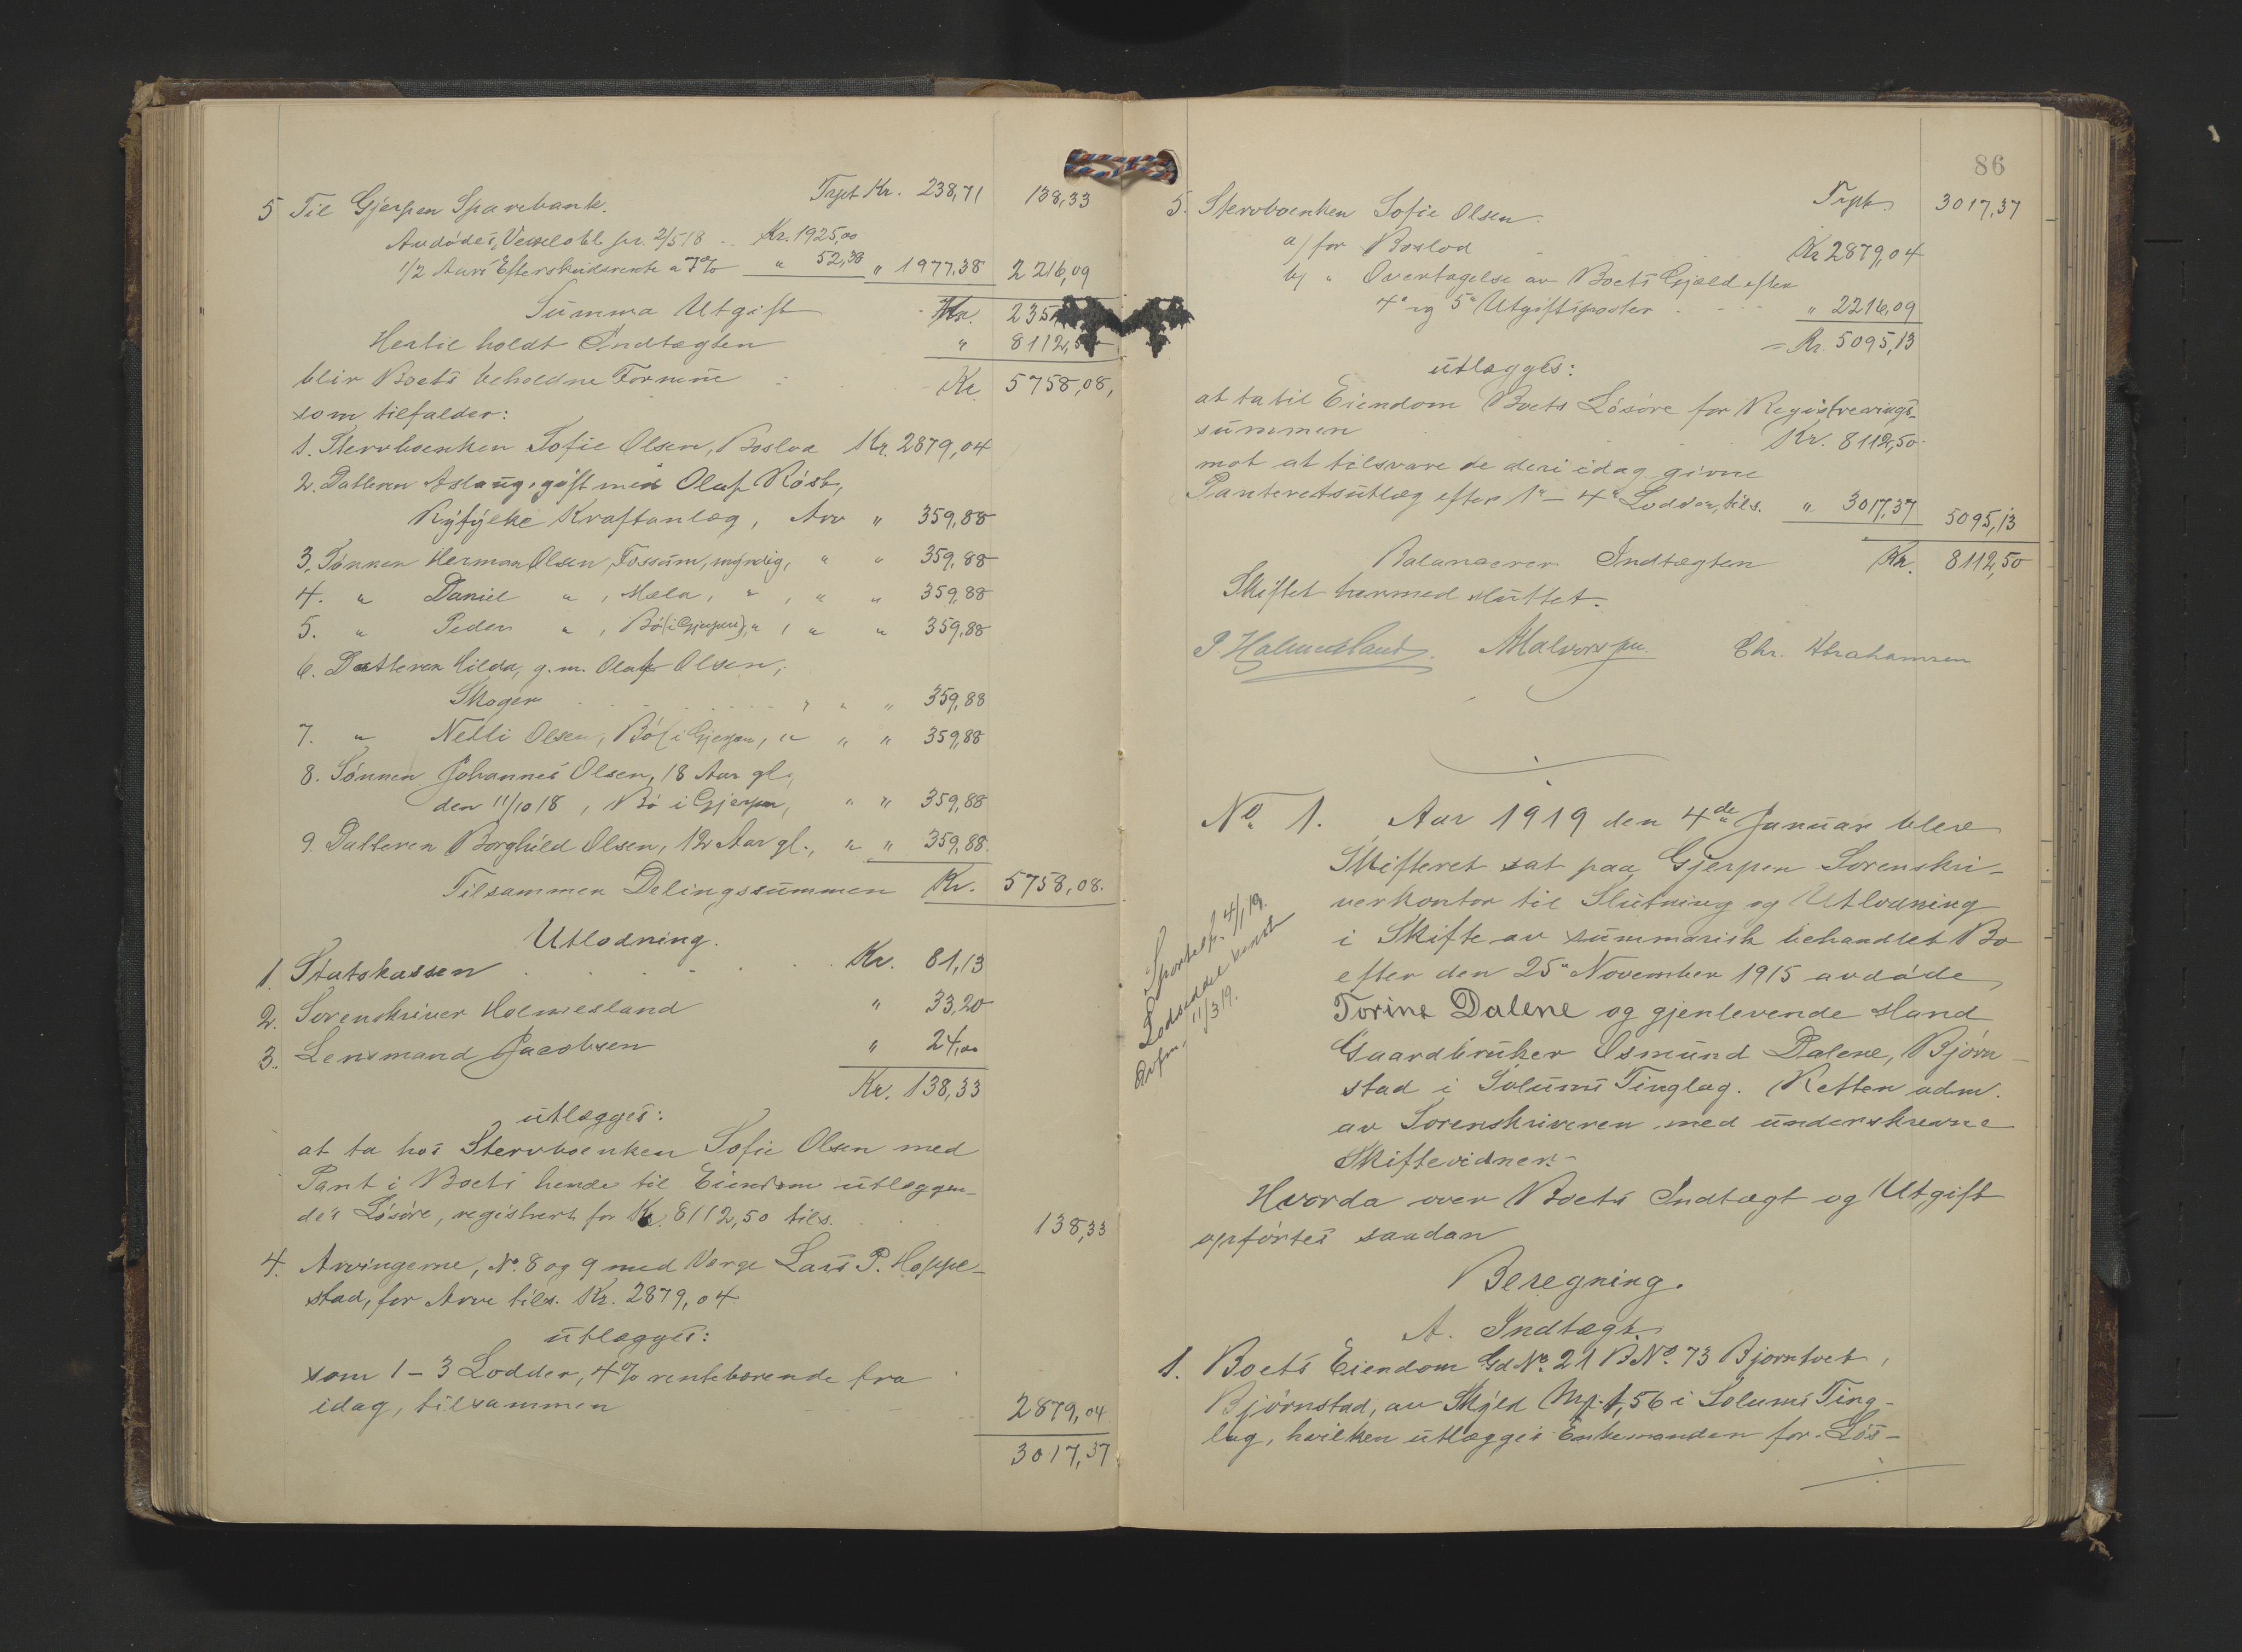 5 Til Gjerpen Sparebank. Trspt Kr. 238,71 138,33
Avdødes Vexelobl. pr. 2/5 18 Kr. 1925,00
1/2 Aars Efterskudsrente a 7% " 52,38 " 1977,38 2216,09
Summa Utgift Kr. 235
Hertil holdt Indtægten " 8112,50
blir Boets beholdne Formue Kr 5758,08,
som tilfalder:
1. Stervboenken Sofie Olsen, Boslod Kr. 2879,04
2. Datteren Aslaug, gift med Olaf Röst,
Ryfylke Kraftanlæg, Arv " 359,88
3. Sønnen Herman Olsen, Fossum, myndig, " " 359,88
4. " Daniel " , Mæla, " , " " 359,88
5. " Peder " , Bö (i Gjerpen), " , " " 359,88
6. Datteren Hilda, g. m. Olaf Olsen,
Skoger " " " 359,88
7. " Nelli Olsen, Bö (i Gjerpen, " " " 359,88
8. Sønnen Johannes Olsen, 18 Aar gl.
den 11/10 18, Bö i Gjerpen, " " 359,88
9. Datteren Borghild Olsen, 12 Aar gl., " " 359,88.
Tilsammen Delingssummen Kr. 5758,08.
Utlodning.
1. Statskassen Kr. 81,13
2. Sorenskriver Holmesland " 33,20
3. Lensmand Jacobsen " 24,00
Kr. 138,33
utlægges:
at ta hos Stervboenken Sofie Olsen med
Pant i Boets hende til Eiendom utlæggen-
de Løsøre, registrert for Kr. 8112,50 tils. 138,33
4. Arvingerne, No. 8 og 9 med Verge Lars P. Hoppe-
stad, for Arv tils. Kr. 2879,04
utlægges:
som 1 - 3 Lodder, 4% rentebærende fra
idag, tilsammen 2879,04
3017,37
86
5. Stervboenken Sofie Olsen Trspt. 3017,37
a) for Boslod Kr 2879,04
b) " Overtagelse av Boets Gjæld efter
4" og 5" Utgiftsposter " 2216,09
= Kr. 5095,13
utlægges:
at ta til Eiendom Boets Løsøre for Registrerings-
summen Kr. 8112,50
mot at tilsvare de deri idag givne
Panteretsutlæg efter 1" - 4" Lodder, tils. " 3017,37 5095,13
Balancerer Indtægten Kr. 8112,50
Skiftet hermed sluttet.
P. Holmesland. Chr. Abrahamsen
No 1. Aar 1919 den 4de Januar blev
Skifteret sat paa Gjerpen Sorenskri-
verkontor til Slutning og Utlodning
i Skifte av summarisk behandlet Bo
efter den 25" November 1915 avdøde
Torine Dalene og gjenlevende Mand
Gaardbruker Osmund Dalene, Bjørn-
stad i Solums Tinglag. Retten adm.
av Sorenskriveren med underskrevne
Skiftevidner.
4/1 19.
Lodseddel
11/3 19.
Hvorda over Boets Indtægt og Utgift
opførtes saadan
Beregning.
A. Indtægt.
1. Boets Eiendom Gd No. 21 BNo. 73 Bjorntvet,
Bjørnstad, av Skyld Mrk. 1,56 i Solums Ting-
lag, hvilken utlægges Enkemanden for Løs-